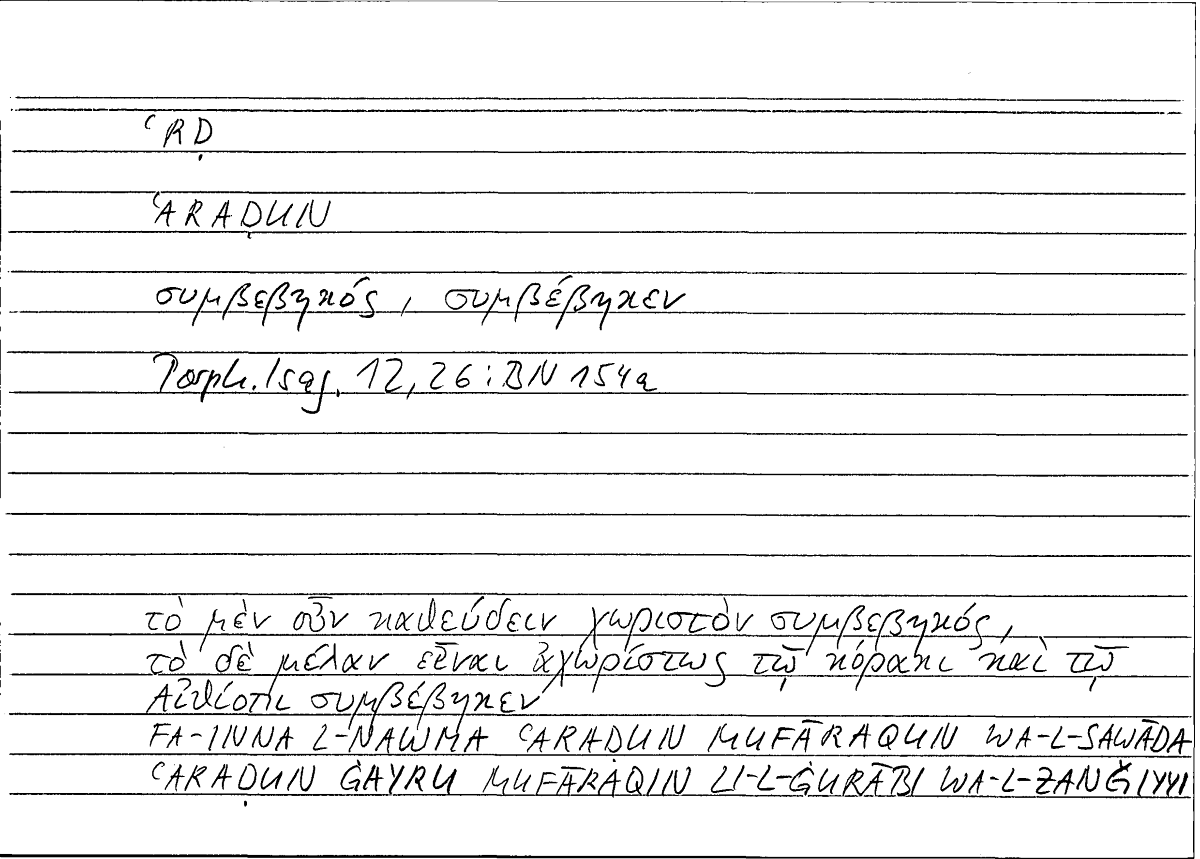 ʿRḌ
ʿARAḌUN
συμβεβηκός, συμβέβηκεν
Porph. Isag. 12,26 : BN 154a
τὸ μὲν οὖν καθεύδειν χωριστὸν συμβεβηκός,
τὸ δὲ μέλαν εἶναι ἀχωρίστως τῷ κόρακι καὶ τῷ
Αἰθίοπι συμβέβηκεν
FA-INNA L-NAWMA ʿARAḌUN MUFĀRAQUN WA-L-SAWĀDA
ʿARAḌUN ĠAYRU MUFĀRAQIN LI-L-ĠURĀBI WA-L-ZANǦIYYI